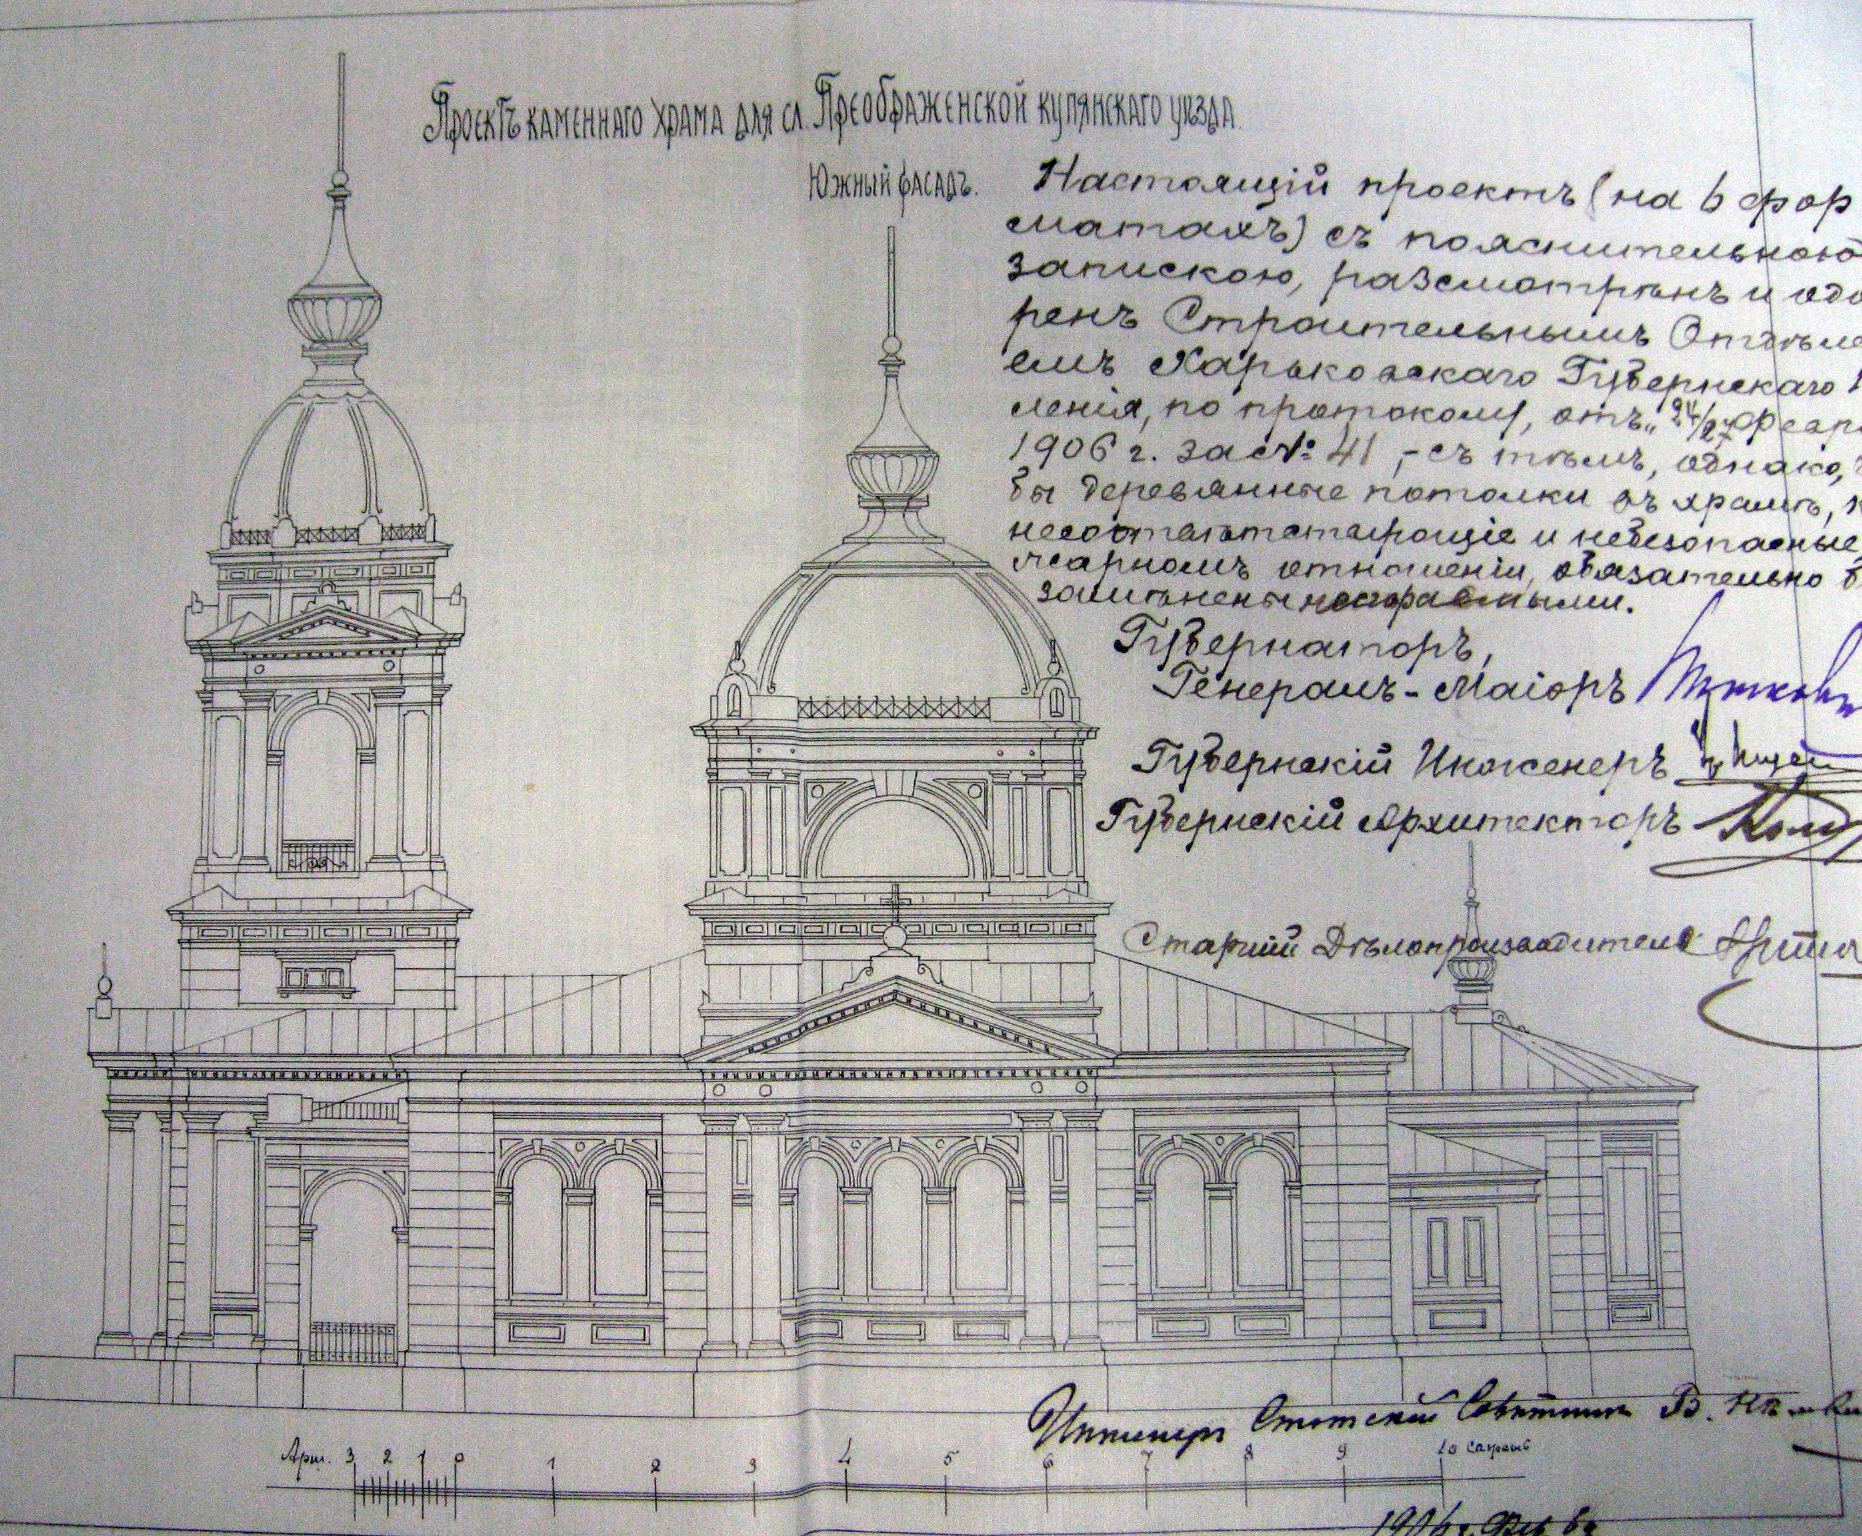 Проектъ каменнаго храма для сл. Преображенской купянскаго уѣзда.
Южный фасадъ.
Настоящій проектъ (на 6 фор
матахъ) съ пояснительною
запискою, разсмотрѣнъ и одо
ренъ Строительнымъ Отдѣле
емъ Харьковскаго Губернскаго
ленія, по протоколу, отъ „24/27 Февра
1906 г. за № 41, - съ тѣмъ, однако,
бы деревянные потолки въ храмѣ,
несоотвѣтствующіе и небезопасные
жарномъ отношеніи, обязательно б
замѣнены несгораемыми.
Губернаторъ,
Генералъ-Маіоръ
Губернскій Инженеръ
Губернскій Архитекторъ
Старшій Дѣлопроизводитель
Инженеръ Статскій Совѣтникъ В.
Арш. 3 2 1 0 1 2 3 4 5 6 7 8 9 10 сажень
1906 г.